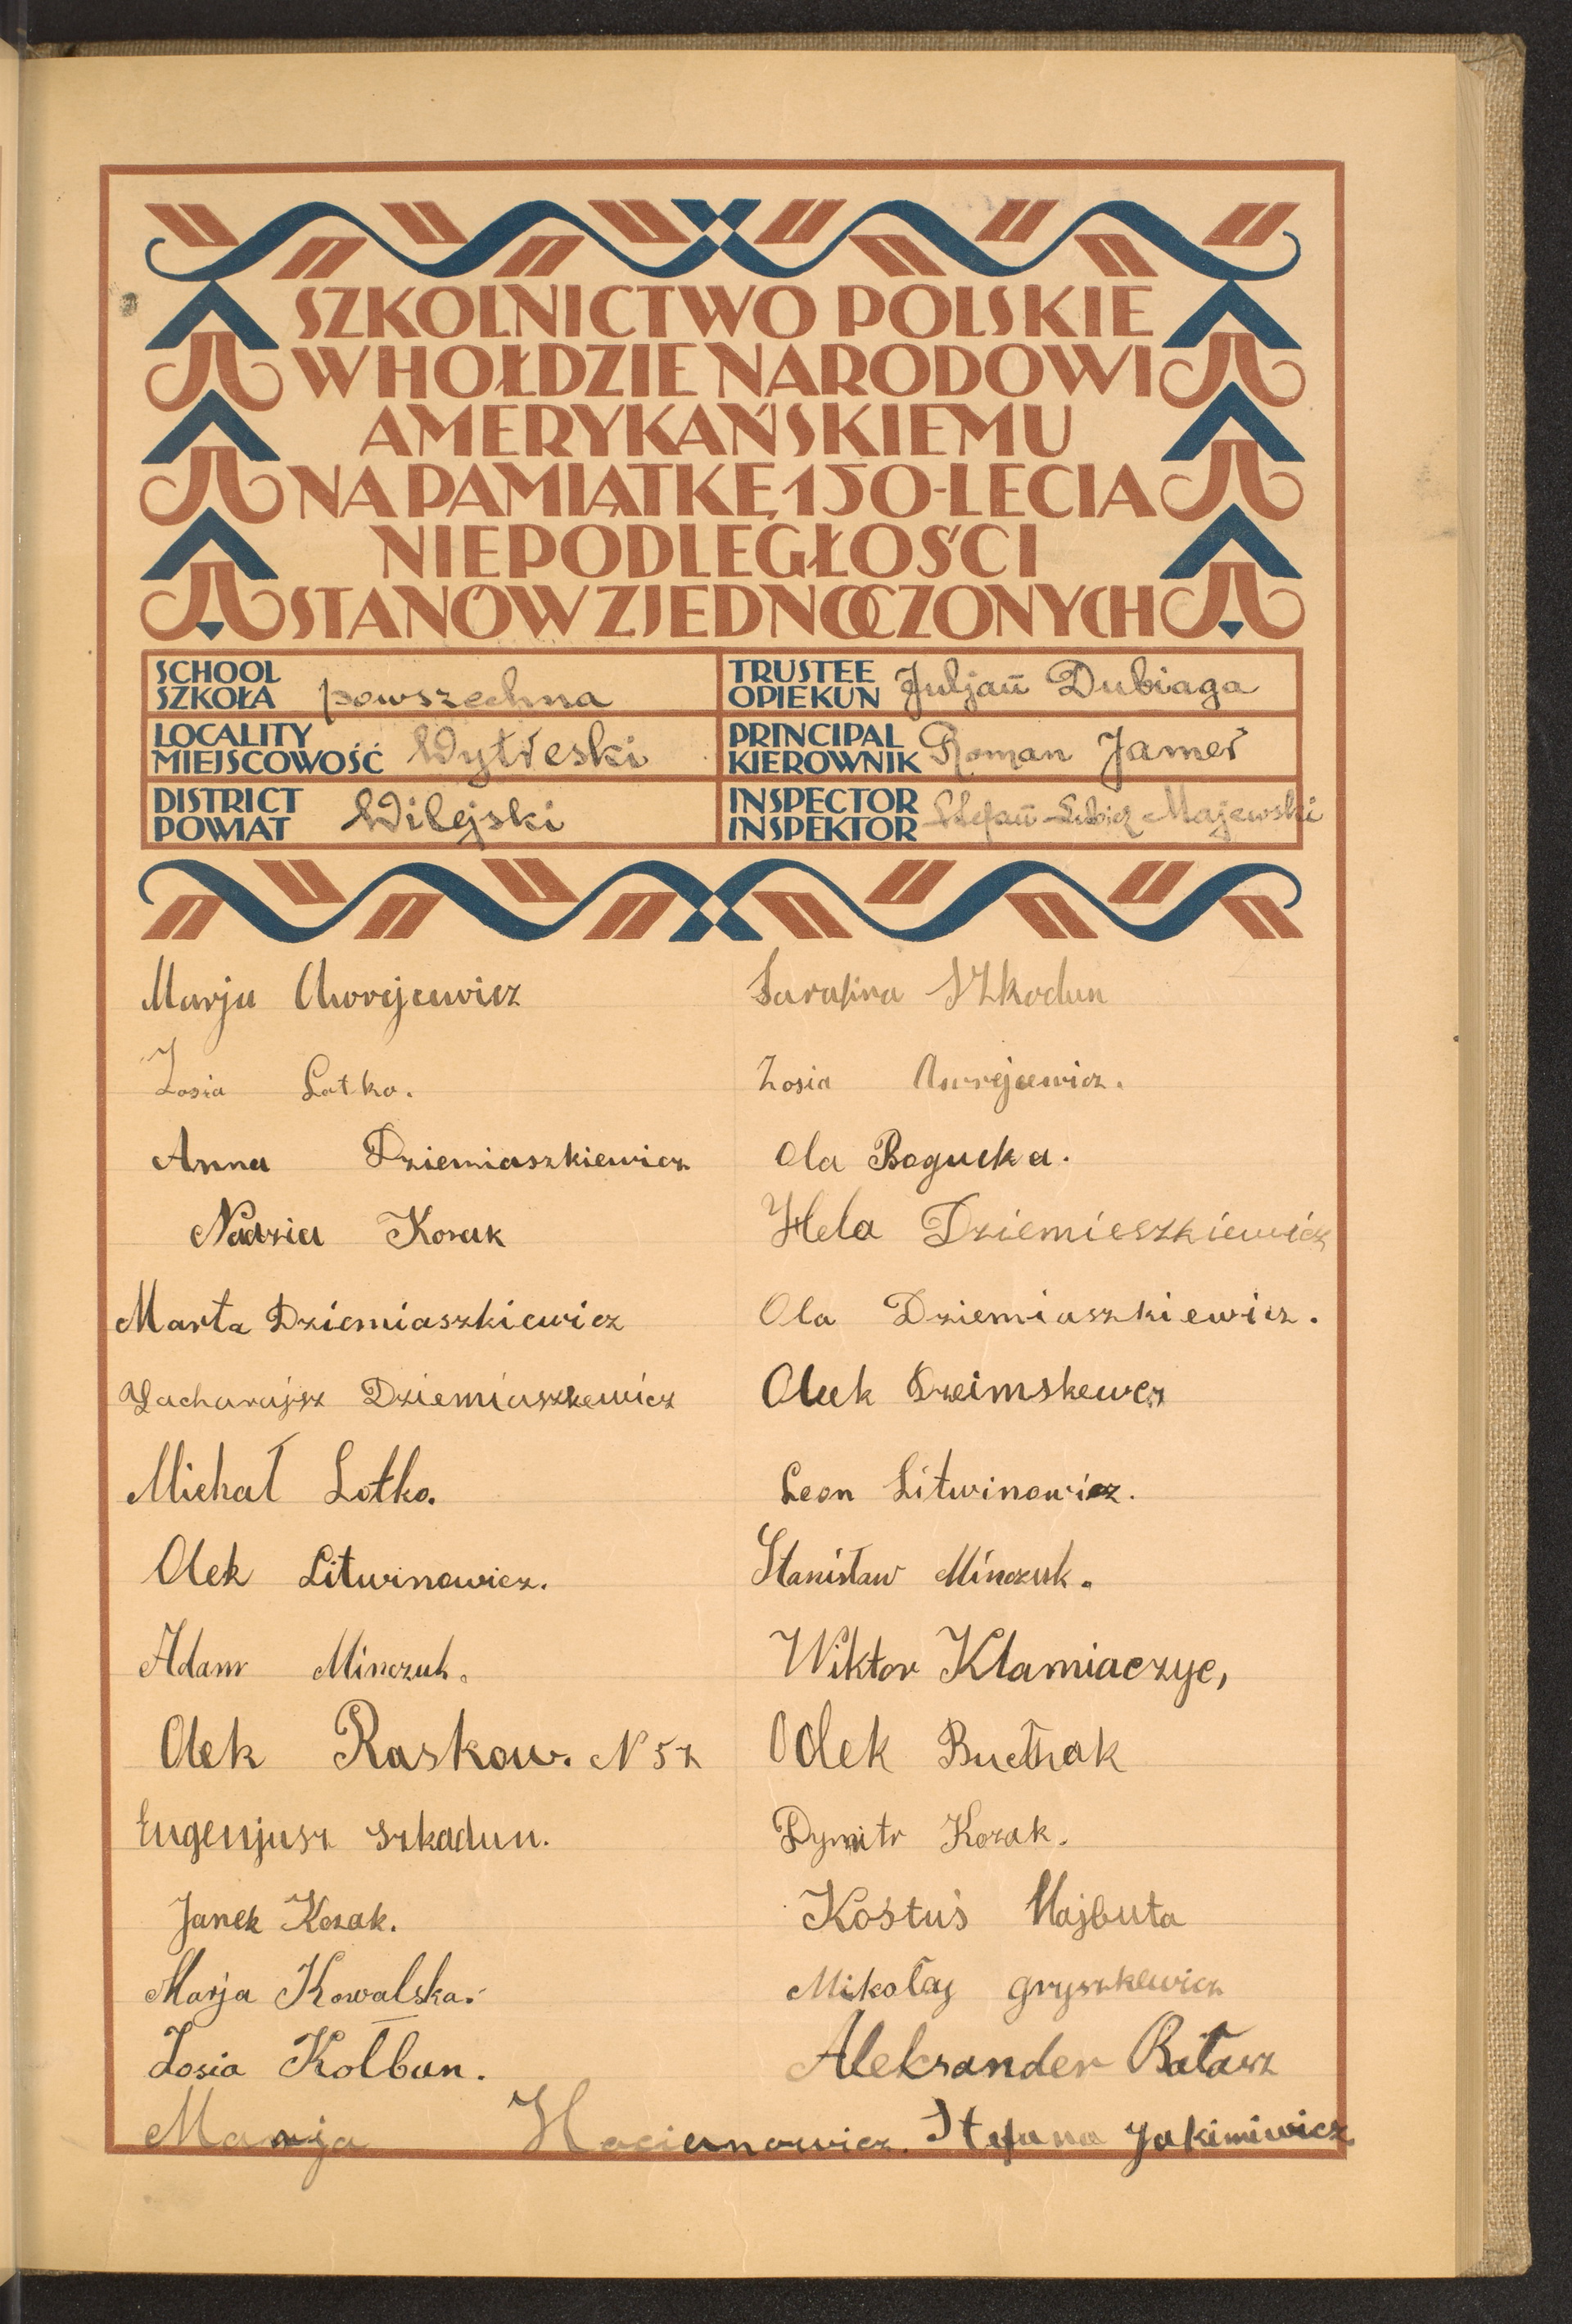 SZKOLNICTWO POLSKIE
W HOŁDZIE NARODOWI
AMERYKAŃSKIEMU
NA PAMIĄTKĘ 150-LECIA
NIEPODLEGŁOŚCI
STANÓW ZJEDNOCZONYCH
SCHOOL
SZKOŁA powszechna
TRUSTEE
OPIEKUN Juljan Dubiaga
LOCALITY
MIEJSCOWOŚĆ Wytreski
PRINCIPAL
KIEROWNIK Roman Jamer
DISTRICT
POWIAT Wilejski
INSPECTOR
INSPEKTOR Stefan Lubicz Majewski
Marja Awrejcewicz
Sarafina Szkodun
Zosia Lotko.
Zosia Awrejcewicz.
Anna Dziemiaszkiewicz
Ola Bogucka.
Nadzia Kozak
Hela Dziemieszkiewicz
Marta Dziemiaszkiewicz
Ola Dziemiaszkiewicz.
Zacharajsz Dziemiaszkewicz
Oluk Dzeimskewcz
Michał Lotko.
Leon Litwinowicz.
Olek Litwinowicz.
Stanisław Minczuk.
Adam Minczuk.
Wiktor Klamiaczyc,
Olek Raskow. N 57
Olek
Eugenjusz Szkadun.
Dymitr Kozak.
Janek Kozak.
Kostuś Majbuta
Marja Kowalska.
Mikołaj gryszkewicz
Zosia Kołban.
Aleksander Bałasz
Marja Haciemowicz.
Stefana Jakimiwicz